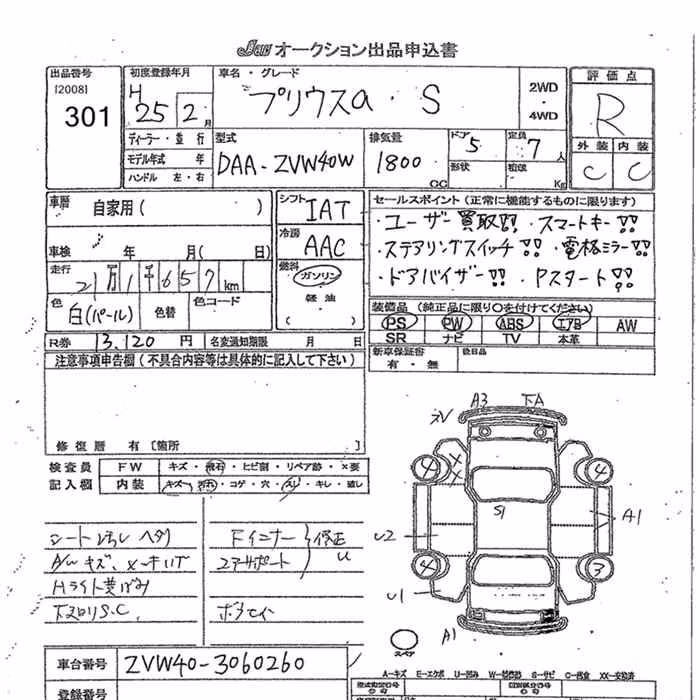 JAA オークション出品申込書
出品番号 [2008] 301
初度登録年月 H 25 2月
車名・グレード プリウスα・S
2WD・4WD
評価点 R
外装 C 内装 C
ディーラー・並行
モデル年式 年
ハンドル 左・右
型式 DAA-ZVW40W
排気量 1800 CC
ドア 5
形状
定員 7人
積載 Kg
車歴 自家用( )
車検 年 月( 日)
走行 2万1千657km
色 白(パール) 色替 色コード
シフト IAT
冷房 AAC
燃料 ガソリン 軽油 ( )
セールスポイント(正常に機能するものに限ります)
・ユーザー買取!! ・スマートキー!!
・ステアリングスイッチ!! ・電格ミラー!!
・ドアバイザー!! Pスタート!!
装備品(純正品に限り○を付けてください)
PS PW ABS エアB AW
SR ナビ TV 本革
新車保証書 有・無 後日品
R券 13,120円 名変通知期限 月 日
注意事項申告欄(不具合内容等は具体的に記入して下さい)
修復歴 有[箇所 ]
検査員記入欄
FW キズ・飛石・ヒビ割・リペア跡・×要
内装 キズ・汚れ・コゲ・穴・スレ・キレ・破し
シート ヘタリ
A/W キズ、
Hライト黄ばみ
下スリS.C
Fインナー
コアサポート
修正 U
A3 下A
4 4
S1
A1
U2
4 3
U1
A1
スペア
車台番号 ZVW40-3060260
登録番号
A-キズ E-エクボ U-凹み W-補修跡 S-サビ C-腐食 XX-交換済